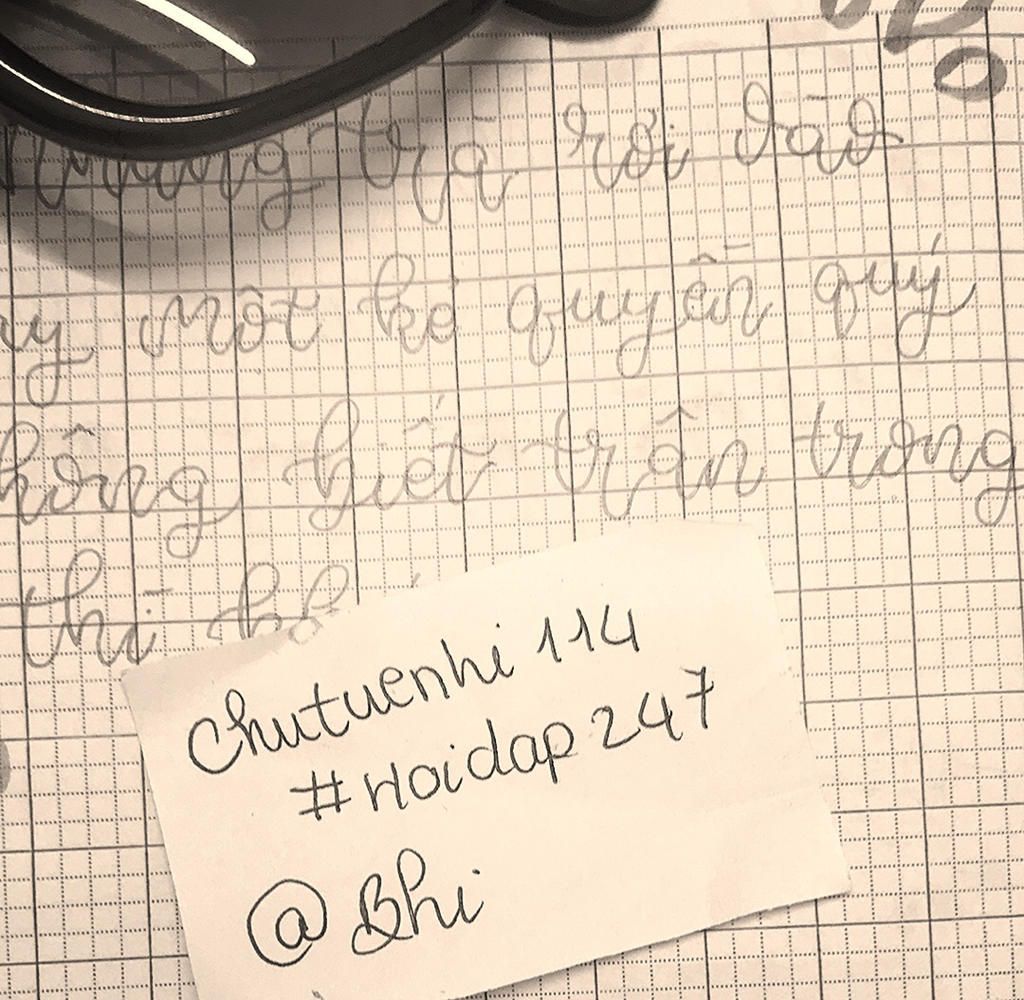 trà rơi vào
ay một kẻ quyền quý
hông biết trân trọng
thì
Chutuenhi 114
#Hoidap 247
@Bhi